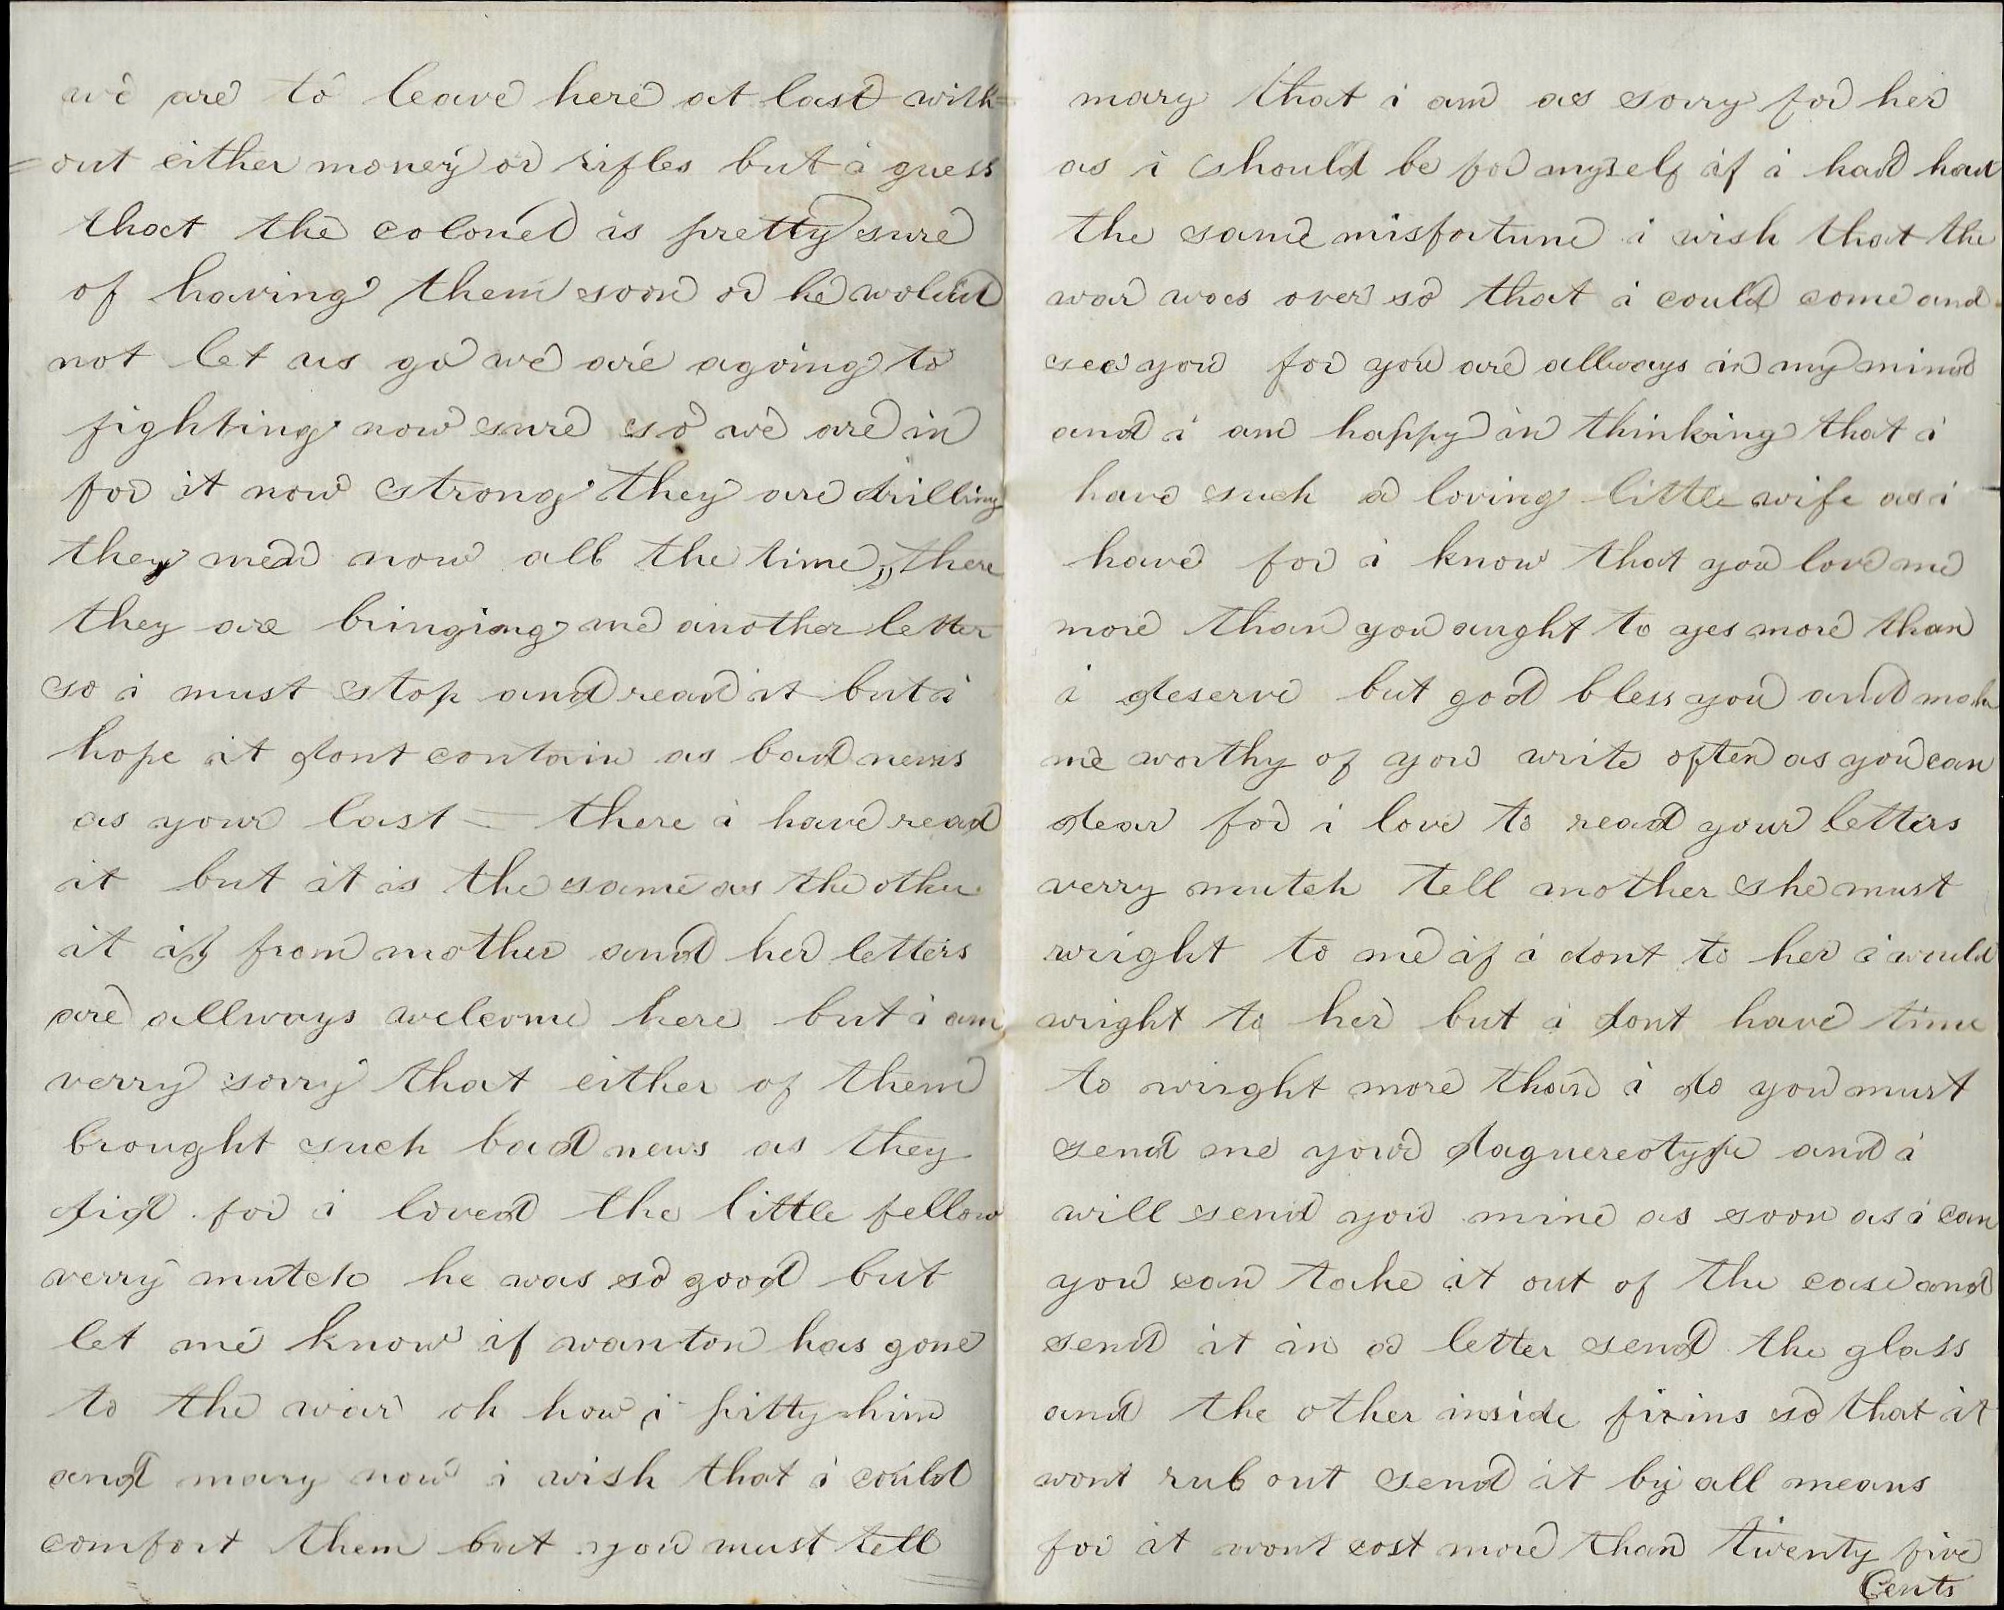 we are to leave here at last with=
=out either money or rifles but i guess
that the colonel is pretty sure
of having them soon or he would
not let us go we are agoing to
fighting now sure so we are in
for it now strong they are drilling
they men now all the time,, there
they are bringing me another letter
so i must stop and read it but i
hope it dont contain as bad news
as your last = there i have read
it but it is the same as the other
it is from mother and her letters
are allways welcome here but i am
verry sorry that either of them
brought such bad news as they
did for i loved the little fellow
verry mutch he was so good but
let me know if wanton has gone
to the war oh how i pitty him
and mary now i wish that i could
comfort them but you must tell
mary that i am as sorry for her
as i should be for myself if i had had
the same misfortune i wish that the
war was over so that i could come and
see you for you are allways in my mind
and i am happy in thinking that i
have such a loving little wife as i
have for i know that you love me
more than you aught to yes more than
i deserve but god bless you and make
me worthy of you write often as you can
dear for i love to read your letters
verry mutch tell mother she must
wright to me if i dont to her i would
wright to her but i dont have time
to wright more than i do you must
send me your daguereotype and i
will send you mine as soon as i can
you can take it out of the case and
send it in a letter send the glass
and the other inside fixins so that it
wont rub out send it by all means
for it wont cost more than twenty five
Cents